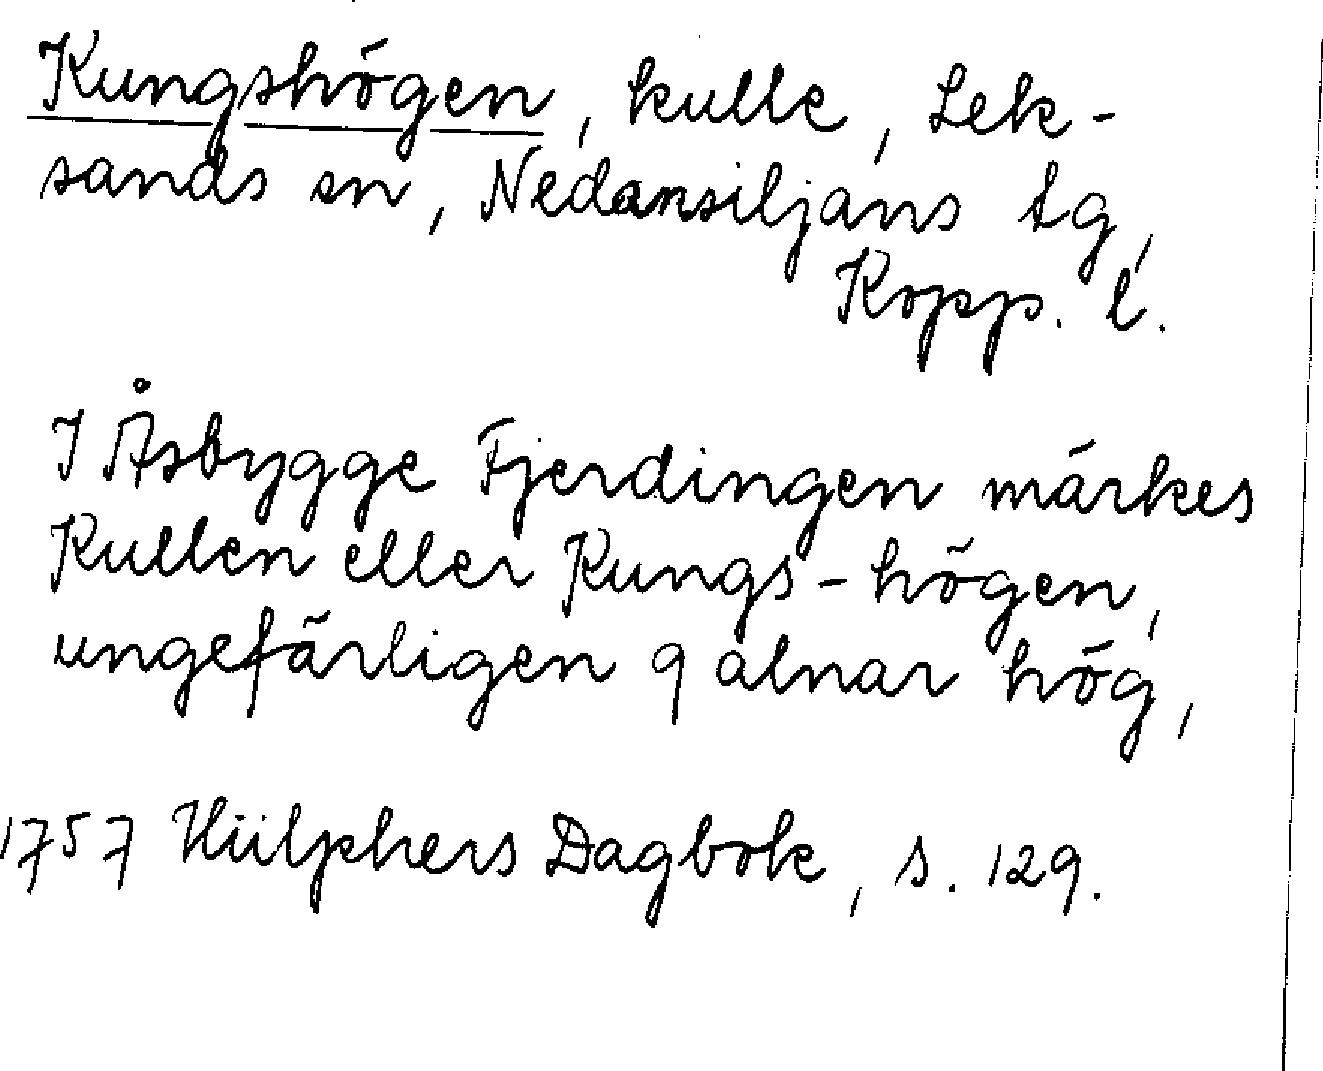 Kungshögen, kulle, Lek-
sands sn, Nedansiljans tg,
Kopp. l.
I Åsbygge Fjerdingen märkes
Kullen eller Kungs-högen,
ungefärligen 9 alnar hög,
1757 Hülphers Dagbok, s. 129.